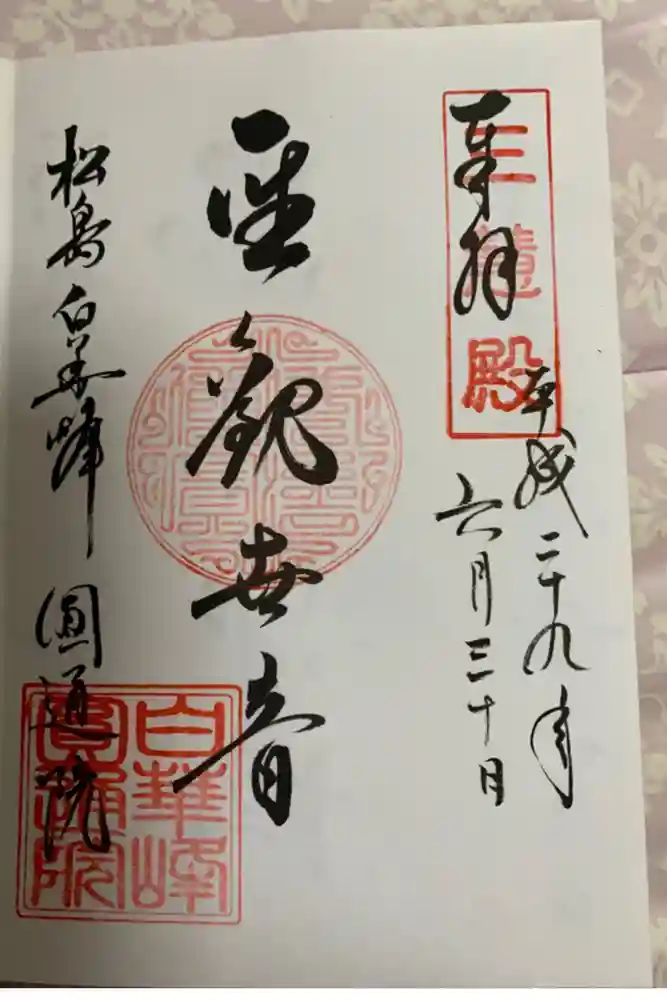 奉拝
三慧殿
平成二十九年
六月三十日
聖観世音
松島白華峰 圓通院
白華峰
圓通院